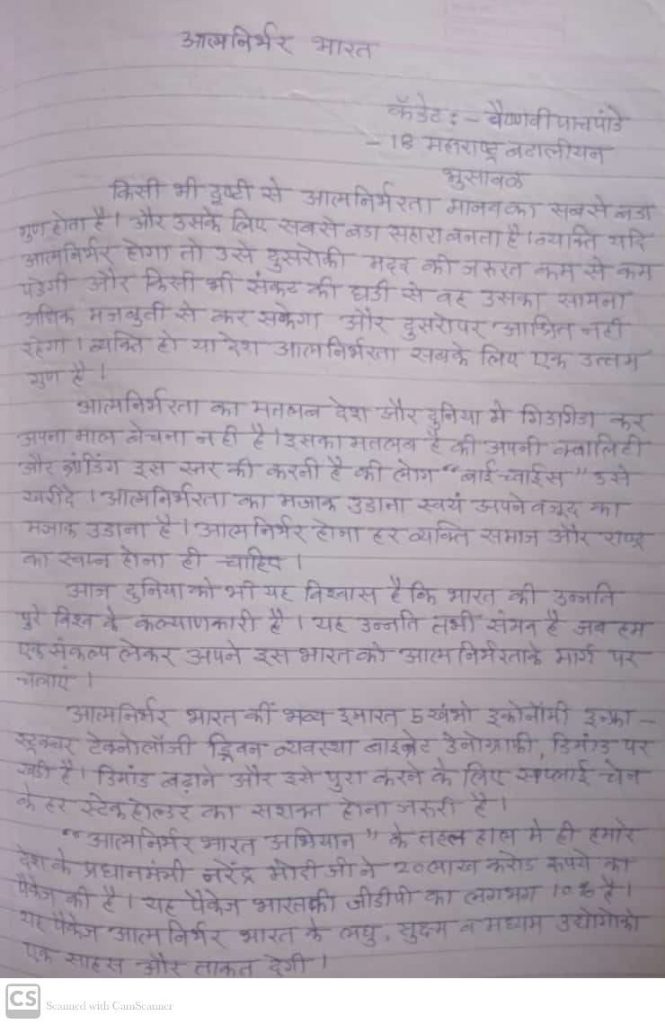 आत्मनिर्भर भारत
कॅडेट :- वैष्णवी पाचपांडे
- 18 महाराष्ट्र बटालीयन
भुसावळ
किसी भी दृष्टी से आत्मनिर्भरता मानव का सबसे बडा
गुण होता है। और उसके लिए सबसे बडा सहारा बनता है। व्यक्ति यदि
आत्मनिर्भर होगा तो उसे दुसरोकी मदद की जरुरत कम से कम
पडेगी और किसी भी संकट की घडी से वह उसका सामना
अधिक मजबुती से कर सकेगा और दुसरोपर आश्रित नही
रहेगा। व्यक्ति हो या देश आत्मनिर्भरता सबके लिए एक उत्तम
गुण है।
आत्मनिर्भरता का मतलब देश और दुनिया मे गिडगिडा कर
अपना माल बेचना नही है। इसका मतलब है की अपनी क्वालिटी
और ब्रांडिंग इस स्तर की करनी है की लोग "बाई च्वाईस" उसे
खरीदे। आत्मनिर्भरता का मजाक उडाना स्वयं अपने वजूद का
मजाक उडाना है। आत्मनिर्भर होना हर व्यक्ति समाज और राष्ट्र
का स्वप्न होना ही चाहिए।
आज दुनिया को भी यह विश्वास है कि भारत की उन्नति
पुरे विश्व के कल्याणकारी है। यह उन्नति तभी संभव है जब हम
एक संकल्प लेकर अपने इस भारत को आत्मनिर्भरताके मार्ग पर
चलाएं।
आत्मनिर्भर भारत की भव्य इमारत 5 खंभो इकोनॉमी इन्फ्रा-
स्ट्रक्चर टेक्नोलॉजी ड्रिवन व्यवस्था वाइब्रेट डेनोग्राफी, डिमांड पर
खडी है। डिमांड बढाने और इसे पुरा करने के लिए सप्लाई चेन
के हर स्टेकहोल्डर का सशक्त होना जरुरी है।
"आत्मनिर्भर भारत अभियान" के तहत हाल मे ही हमारे
देश के प्रधानमंत्री नरेंद्र मोदी जी ने 20 लाख करोड रुपये का
पैकेज की है। यह पैकेज भारतकी जीडीपी का लगभग 10% है।
यह पैकेज आत्मनिर्भर भारत के लघु, सुक्ष्म व मध्यम उद्योगोको
एक साहस और ताकत देगी।
CS Scanned with CamScanner